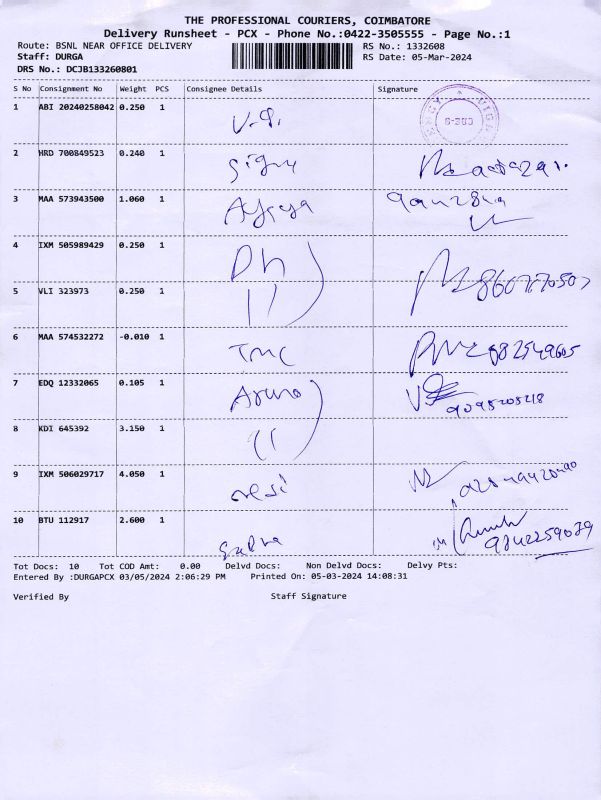 THE PROFESSIONAL COURIERS, COIMBATORE
Delivery Runsheet - PCX - Phone No.:0422-3505555 - Page No.:1
Route: BSNL NEAR OFFICE DELIVERY RS No.: 1332608
Staff: DURGA RS Date: 05-Mar-2024
DRS No.: DCJB133260801
S No Consignment No Weight PCS Consignee Details Signature
1 ABI 20240258042 0.250 1
2 HRD 700849523 0.240 1
3 MAA 573943500 1.060 1
4 IXM 505989429 0.250 1 Dh
5 VLI 323973 0.250 1 11
6 MAA 574532272 -0.010 1 TMC
7 EDQ 12332065 0.105 1 Aruno 9095205218
8 KDI 645392 3.150 1
9 IXM 506029717 4.050 1
10 BTU 112917 2.600 1 9842259039
Tot Docs: 10 Tot COD Amt: 0.00 Delvd Docs: Non Delvd Docs: Delvy Pts:
Entered By :DURGAPCX 03/05/2024 2:06:29 PM Printed On: 05-03-2024 14:08:31
Verified By Staff Signature